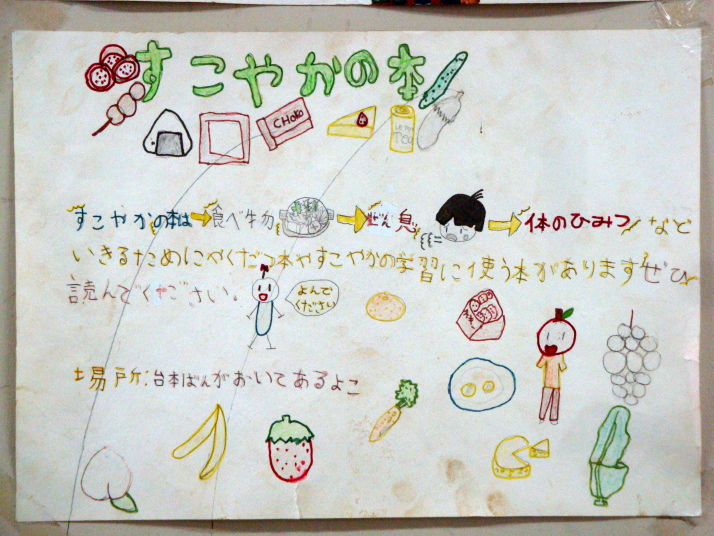 すこやかの本
CHOKO
Tea
すこやかの本は→食べ物→ぜん息→体のひみつなど
いきるためにやくだつ本やすこやかの学習に使う本がありますぜひ
読んでください。
よんで
ください
場所:台本ばんがおいてあるよこ